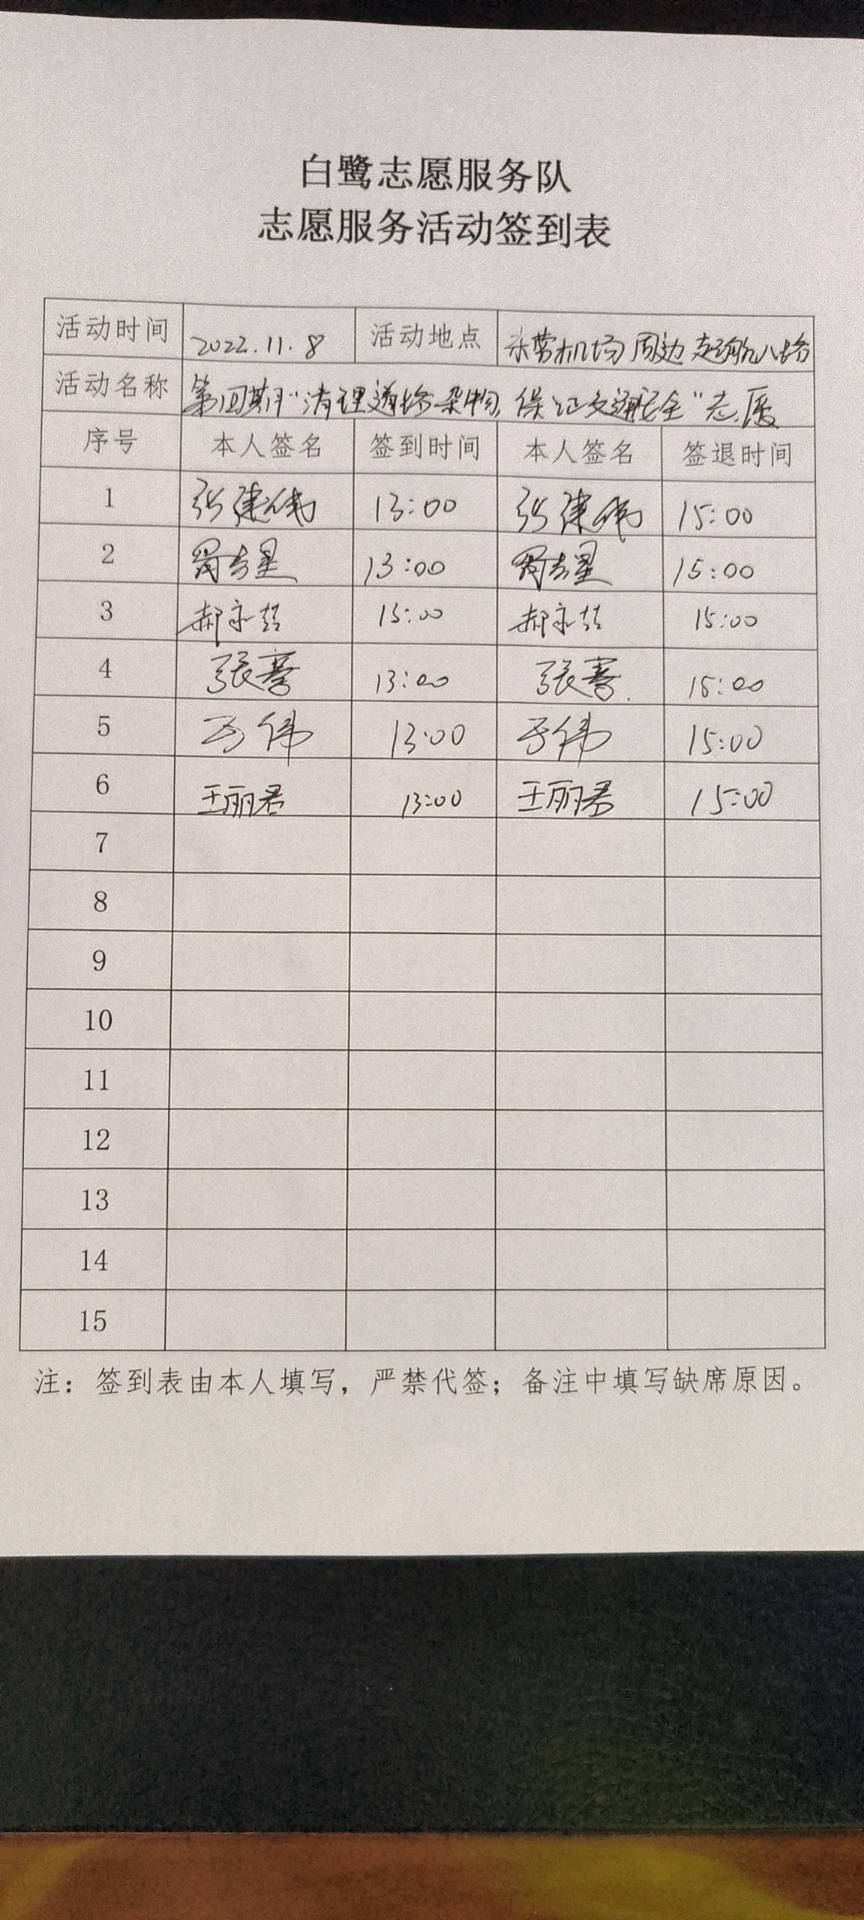 白鹭志愿服务队
志愿服务活动签到表
活动时间 2022.11.8 活动地点 东营机场周边
活动名称 第四期"清理道路杂物,保证交通安全"志愿
序号 本人签名 签到时间 本人签名 签退时间
1 张建伟 13:00 张建伟 15:00
2 13:00 15:00
3 郝永 15:00 郝永 15:00
4 张蓉 13:00 张蓉 15:00
5 于伟 13:00 于伟 15:00
6 王丽君 13:00 王丽君 15:00
7
8
9
10
11
12
13
14
15
注：签到表由本人填写，严禁代签；备注中填写缺席原因。